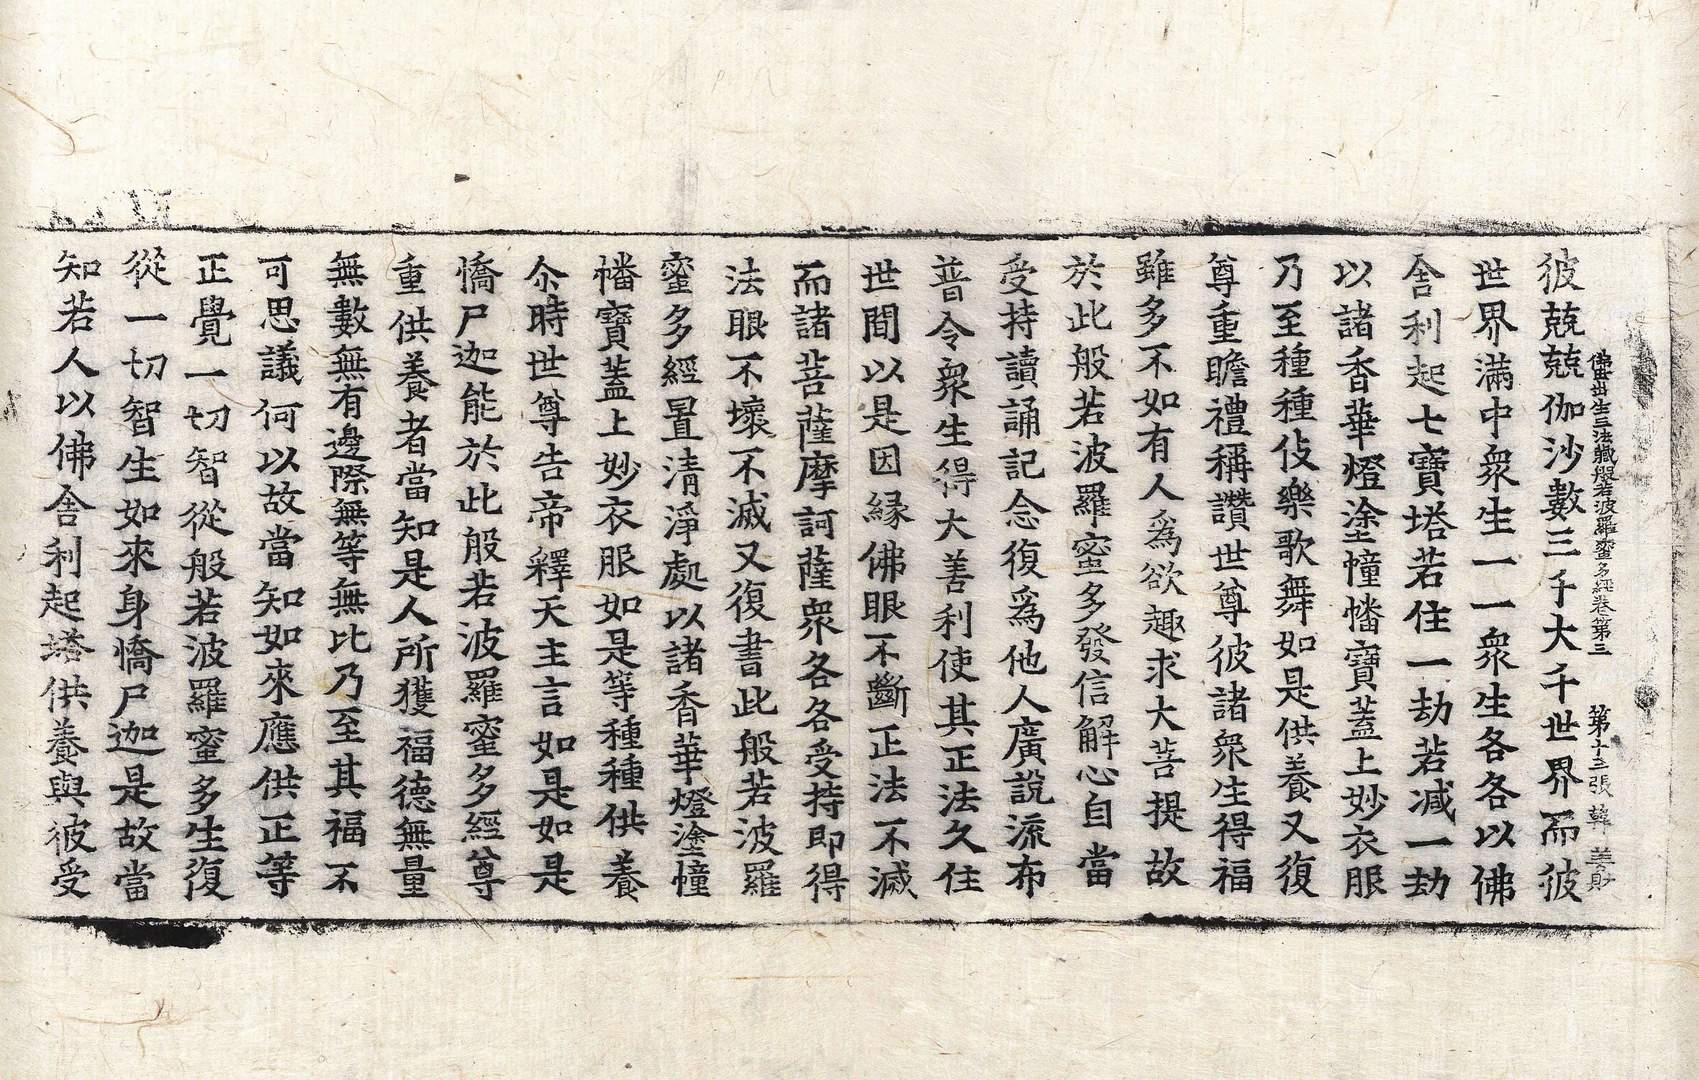 佛母出生三法藏般若波羅蜜多經卷第三 第十三張 韓
彼兢兢伽沙數三千大千世界而彼
世界滿中衆生一一衆生各各以佛
舍利起七寶塔若住一劫若减一劫
以諸香華燈塗幢幡寶蓋上妙衣服
乃至種種伎樂歌舞如是供養又復
尊重瞻禮稱讚世尊彼諸衆生得福
雖多不如有人爲欲趣求大菩提故
於此般若波羅蜜多發信解心自當
受持讀誦記念復爲他人廣說流布
普令衆生得大善利使其正法久住
世間以是因緣佛眼不斷正法不滅
而諸菩薩摩訶薩衆各各受持即得
法眼不壞不滅又復書此般若波羅
蜜多經置清淨處以諸香華燈塗幢
幡寶蓋上妙衣服如是等種種供養
尒時世尊告帝釋天主言如是如是
憍尸迦能於此般若波羅蜜多經尊
重供養者當知是人所獲福德無量
無數無有邊際無等無比乃至其福不
可思議何以故當知如來應供正等
正覺一切智從般若波羅蜜多生復
從一切智生如來身憍尸迦是故當
知若人以佛舍利起塔供養與彼受